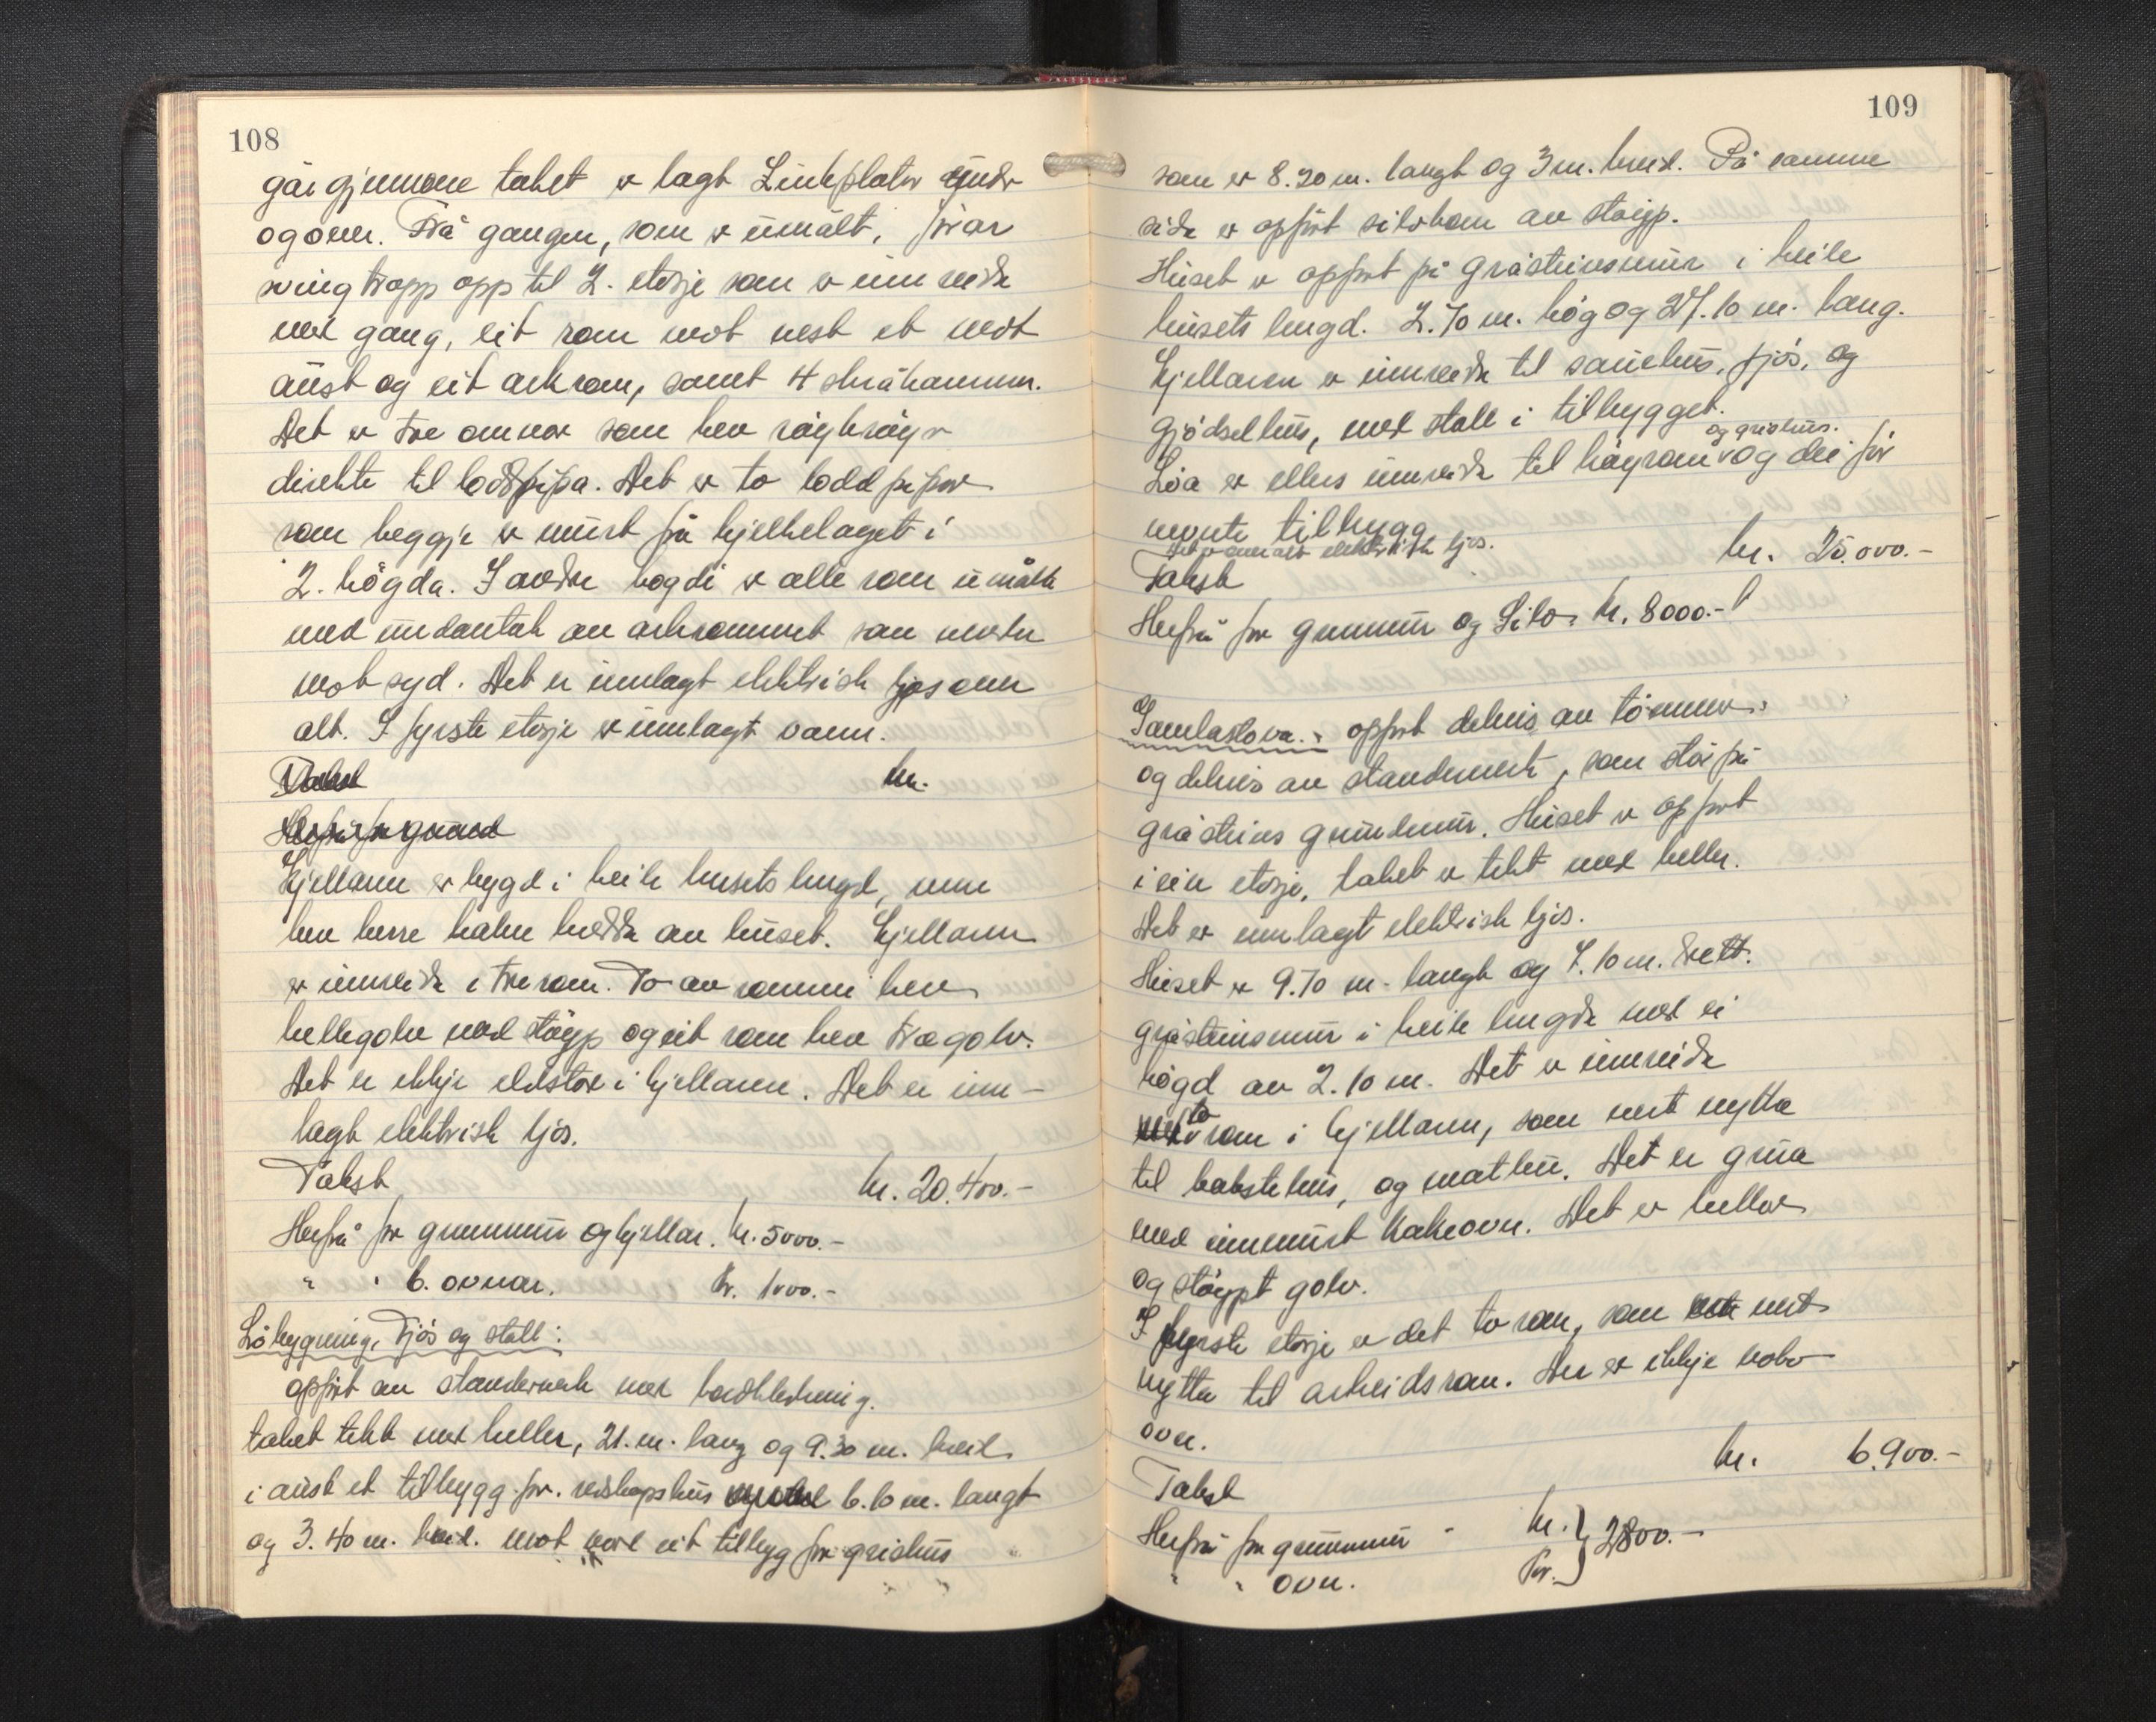 108
går gjennom taket er lagt Zinkplater under
og over. Frå gangen, som er umålt, fører
svingtropp opp til 2. etasje som er innreidt
med gang, eit rom mot vest et mot
aust og eit arkrom, samt 4 skråkammer.
Det er tre omnar som hev røykrøyr
direkte til loddpipa. Det er to loddpipor
som beggje er murt frå bjelkelaget i
2. høgda. I andre høgdi er alle rom umålte
med undantak av arkrommet som vender
mot syd. Det er innlagt elektrisk ljos over
alt. I fyrste etasje er innlagt vann.
Takst kr.
Herfrå for grunnd
Kjellaren er bygd i heile husets lengd, men
hev berre halve bredde av huset. Kjellaren
er innreidt i tre rom. To av rommi hev
hellegolv med støyp og eit rom hev tregolv.
Det er ikkje eldstad i kjellaren. Det er inn-
lagt elektrisk ljos.
Takst kr. 20.400.-
Herfrå for grunnmur og kjellar. kr. 5000.-
" " 6. ovnar. kr. 1000.-
Løbygning, Fjøs og stall:
oppført av standerverk med bordkledning.
taket tekt med heller, 21. m. lang og 9.30 m. breid
i aust et tilbygg for. reiskapshus 6.10 m. langt
og 3.40 m. breid. mot nord eit tilbygg for grishus
109
som er 8.20 m. langt og 3 m. breid. På samme
side er oppført silobom av støyp.
Huset er oppført på gråsteinsmur i heile
husets lengd. 2.70 m. høg og 27.10 m. lang.
Kjellaren er innreidt til sauehus, fjøs, og
gjødselhus, med stall i tilbygget.
og grishus.
Løa er ellers innreidt til høyrom og dei før
nevnte tilbygg
Det er overalt elektrisk ljos.
Takst kr. 25.000.-
Herfrå for grunnmur og Silo. kr. 8000.-
Gamlastova. oppført delvis av tømmer
og delvis av standerverk, som står på
gråsteins grunnmur. Huset er oppført
i ein etasje, taket er tekt med heller.
Det er innlagt elektrisk ljos.
Huset er 9.70 m. langt og 7.10 m. brett.
gråsteinsmur i heile lengda med ei
høgd av 2.10 m. Det er innreidt
to
rom i kjellaren, som vert nytta
til bakstehus, og matbu. Det er grua
med innmurt bakeovn. Det er hellor
og støypt golv.
I fyrste etasje er det to rom, som vert
nytta til arbeidsrom. Der er ikkje nokor
ovn.
Takst kr. 6.900.-
Herfrå for grunnmur kr. } 2800.-
" " ovn. kr.